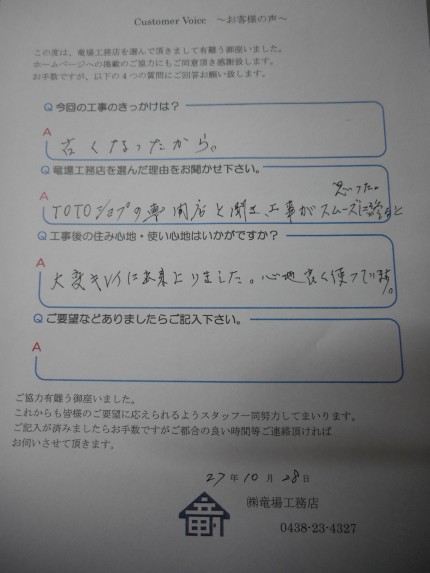 Customer Voice ～お客様の声～
この度は、竜場工務店を選んで頂きまして有難う御座いました。
ホームページへの掲載のご協力にもご同意頂き感謝致します。
お手数ですが、以下の４つの質問にご回答お願い致します。
Q 今回の工事のきっかけは？
A
古くなったから。
Q 竜場工務店を選んだ理由をお聞かせ下さい。
A
思った。
TOTOショップの専門店と聞き工事がスムーズに
Q 工事後の住み心地・使い心地はいかがですか？
A
大変キレイに出来上りました。心地良く使っています。
Q ご要望などありましたらご記入下さい。
A
ご協力有難う御座いました。
これからも皆様のご要望に応えられるようスタッフ一同努力してまいります。
ご記入が済みましたらお手数ですがご都合の良い時間等ご連絡頂ければ
お伺いさせて頂きます。
27年10月28日
㈱竜場工務店
0438-23-4327